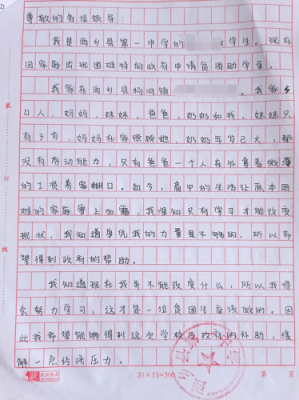 尊敬的各位领导：
我是西乡县第一中学的 学生，现在
因家庭出现困难特向政府申请贫困助学金。
我家在西乡县杨河镇 ，我家
口人，妈妈，妹妹，爸爸，奶奶和我，妹妹只
有3岁，妈妈在家照顾她，奶奶年岁已大，都
没有劳动能力，只有爸爸一个人在外拿着微薄
的工资养家糊口，如今，高中的生活让原本困
难的家庭雪上加霜，我深知只有学习才能改变
现状，我知道单凭我的力量是不够的，所以希
望得到政府的帮助。
我知道现在我并不能改变什么，所以我将
会努力学习，这才是一位贫困生应该做的。因
此我希望能够得到这次学校及政府的补助，缓
解一点经济压力。
20×15=300
第 页
装
订
线